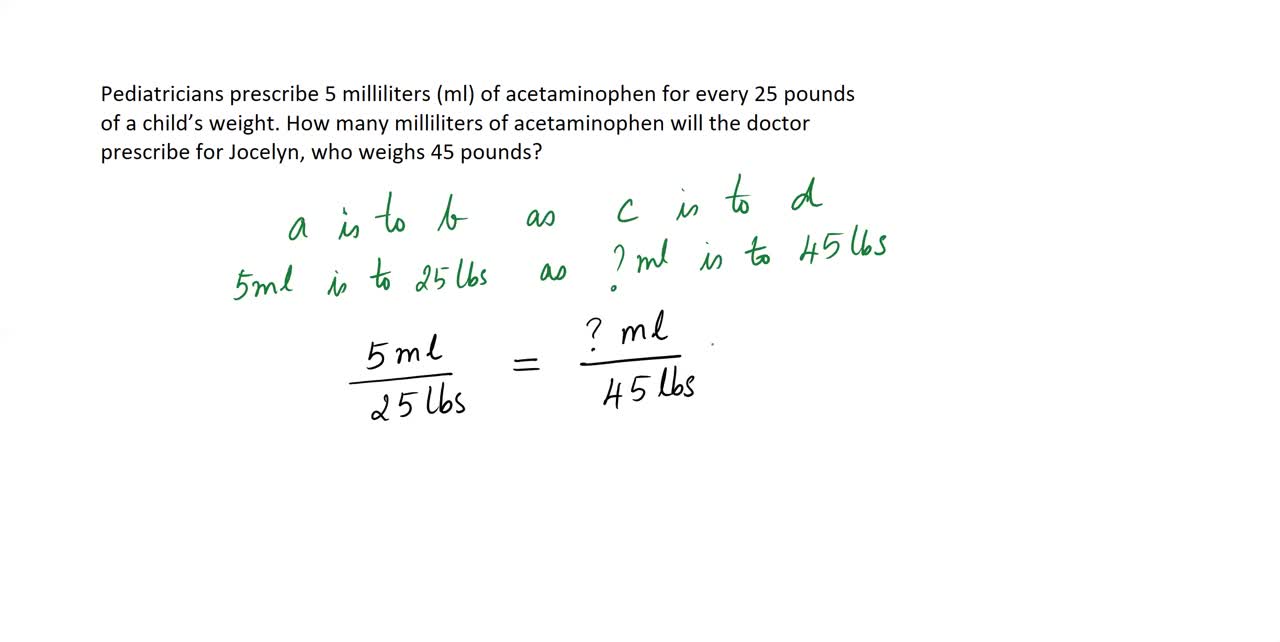 Pediatricians prescribe 5 milliliters (ml) of acetaminophen for every 25 pounds
of a child’s weight. How many milliliters of acetaminophen will the doctor
prescribe for Jocelyn, who weighs 45 pounds?
a is to b as c is to d
5ml is to 25 lbs as ? ml is to 45 lbs
5 ml = ? ml
25 lbs 45 lbs